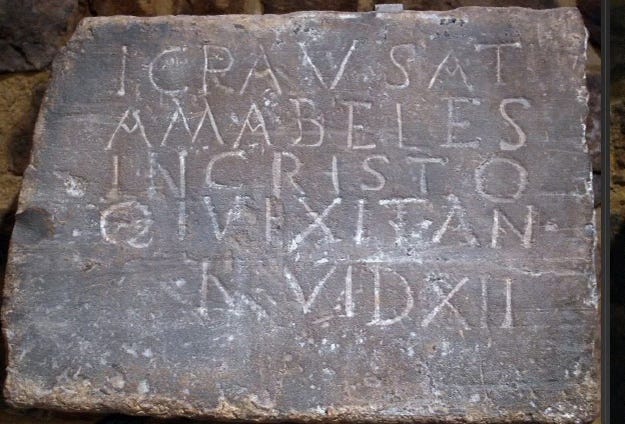 IC PAVSAT
AMABELES
IN CRISTO
QI VIXIT · AN ·
M VI D XII